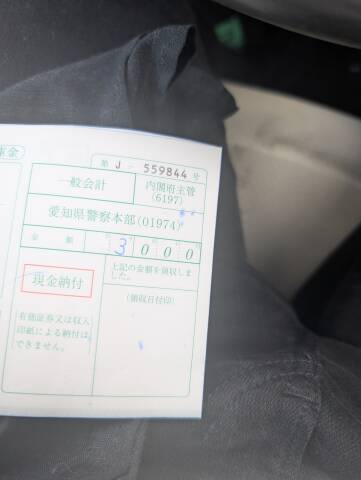 庫金
第 J - 559844 号
一般会計
内閣府主管
(6197)
愛知県警察本部(01974)
金 額
3000
現金納付
上記の金額を領収しま
した。
(領収日付印)
有価証券又は収入
印紙による納付は
できません。